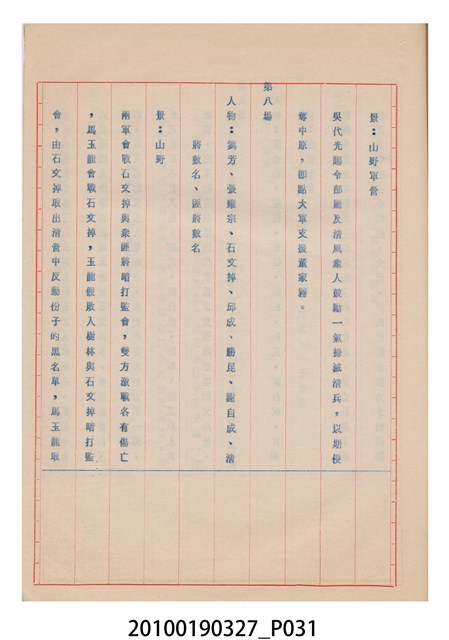 景：山野軍營
吳代光賜令部屬及清風眾人鼓勵一氣掃滅清兵，以期復
奪中原，即點大軍支援董家寨。
第八場
人物：芳、張耀宗、石文掉、邱成、勝昆、謝自成、清
將數名、匪將數名
景：山野
兩軍會戰石文掉與眾匪將暗打監會，雙方激戰各有傷亡
，馬玉龍會戰石文掉，玉龍假敗入樹林與石文掉暗打監
會，由石文掉取出清營中反動份子的黑名單，馬玉龍取
20100190327_P031